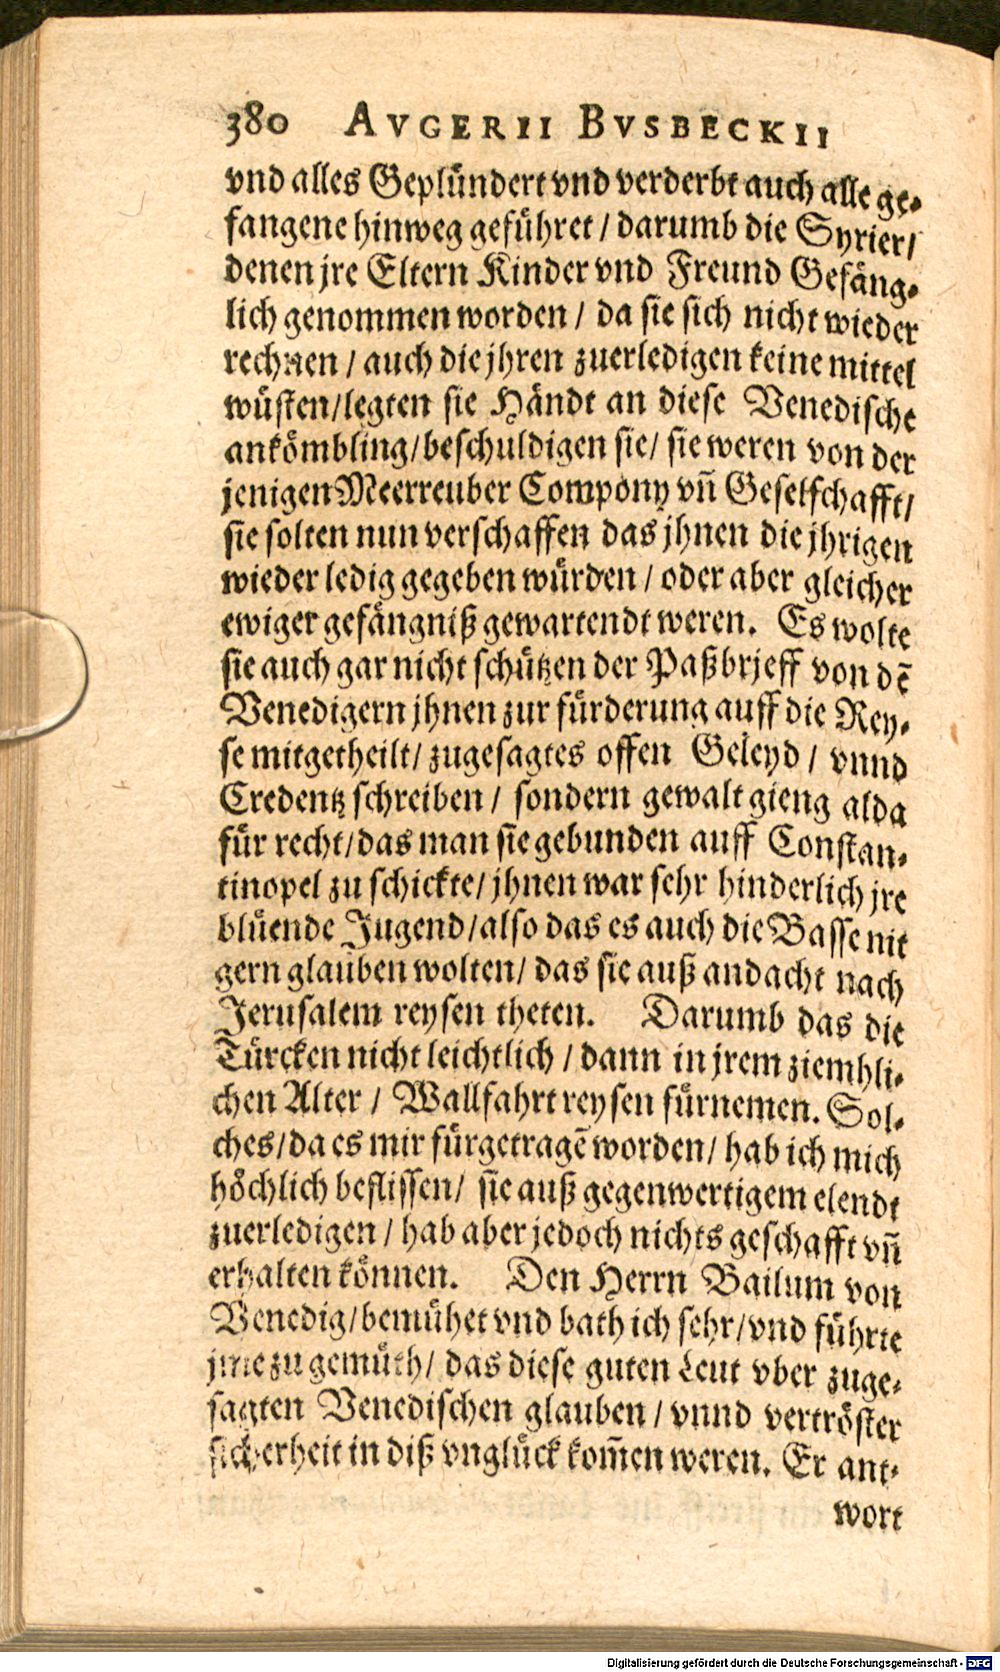 380 AVGERII BVSBECKII
vnd alles Geplündert vnd verderbt auch alle ge-
fangene hinweg geführet / darumb die Syrier /
denen jre Eltern Kinder vnd Freund Gefäng-
lich genommen worden / da sie sich nicht wieder
rechnen / auch die jhren zuerledigen keine mittel
wüsten / legten sie Händt an diese Venedische
ankömbling / beschuldigen sie / sie weren von der
jenigen Meerreuber Compony vñ Geselschafft /
sie solten nun verschaffen das jhnen die jhrigen
wieder ledig gegeben würden / oder aber gleicher
ewiger gefängniß gewartendt weren. Es wolte
sie auch gar nicht schützen der Paßbrjeff von dē
Venedigern jhnen zur fürderung auff die Rey-
se mitgetheilt / zugesagtes offen Geleyd / vnnd
Credentz schreiben / sondern gewalt gieng alda
für recht / das man sie gebunden auff Constan-
tinopel zu schickte / jhnen war sehr hinderlich jre
blüende Jugend / also das es auch die Basse nit
gern glauben wolten / das sie auß andacht nach
Jerusalem reysen theten. Darumb das die
Türcken nicht leichtlich / dann in jrem ziemhli-
chen Alter / Wallfahrt reysen fürnemen. Sol-
ches / da es mir fürgetragē worden / hab ich mich
höchlich beflissen / sie auß gegenwertigem elendt
zuerledigen / hab aber jedoch nichts geschafft vñ
erhalten können. Den Herrn Bailum von
Venedig / bemühet vnd bath ich sehr / vnd führte
jme zu gemüth / das diese guten Leut vber zuge-
sagten Venedischen glauben / vnnd vertröster
sicherheit in diß vnglück kom̃en weren. Er ant-
wort
Digitalisierung gefördert durch die Deutsche Forschungsgemeinschaft - DFG